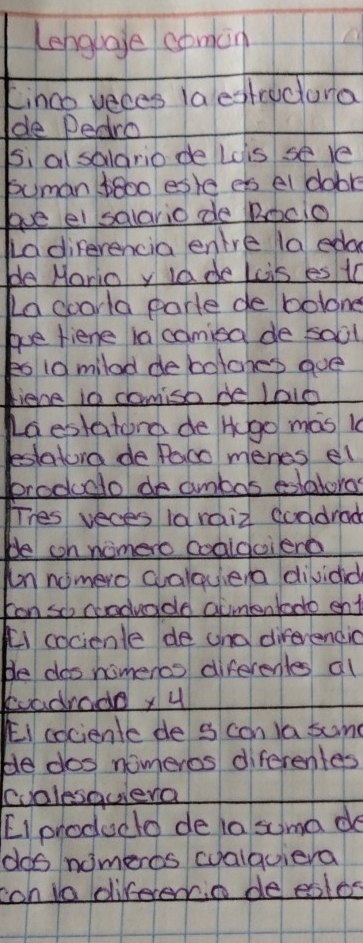 Lenguaje común
Cinco veces la estructura
de Pedro
Si al salario de Luis se le
suman $800 este es el doble
que el salario de Rocio
La diferencia entre la edad
de Mario y la de Luis es
La cuarta parte de botone
que tiene la camisa de saúl
es la mitad de botones que
tiene la camisa de lalo
La estatura de Hugo más l
estatura de Paco menos el
producto de ambas estaturas
Tres veces la raiz cuadrad
de un número cualquiera
Un número cualquiera dividid
con su cuadrado aumentado en
El cociente de una diferencia
de dos números diferentes al
cuadrado y 4
El cociente de 5 con la suma
de dos números diferentes
cualesquiera
El producto de la suma de
dos números cualquiera
con la diferencia de estos